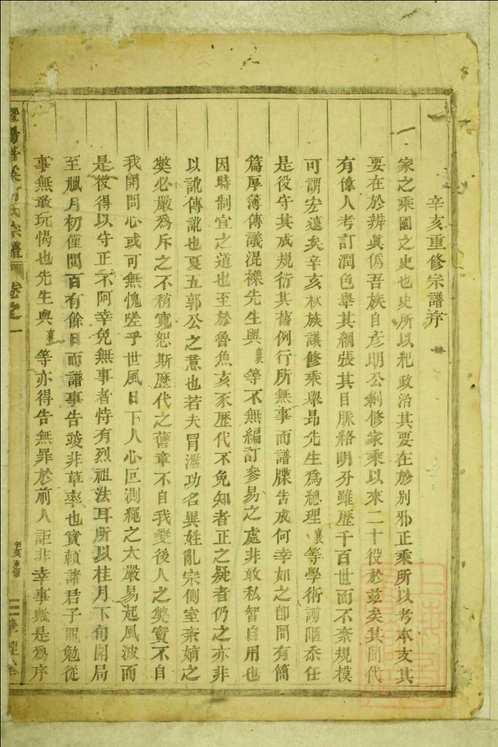 辛亥重修宗譜序
一家之乘國之史也史所以紀政治其要在於別邪正乘所以考本支其
要在於辨眞僞吾族自彦明公剏修家乘以來二十役於茲矣其間代
有偉人考訂潤色舉其綱張其目脈絡明分雖歷千百世而不紊規模
可謂宏遠矣辛亥秋族議修乘舉昂先生爲總理襄等學術謭陋忝任
是役守其成規衍其舊例行所無事而譜牒告成何幸如之卽間有簡
篇厚薄傳議混襍先生與襄等不無編訂參易之處非敢私智自用也
因時制宜之道也至於魯魚亥豕歷代不免知者正之疑者仍之亦非
以訛傳訛也夏五郭公之意也若夫冒濫功名異姓亂宗側室紊嫡之
獘必嚴爲斥之不稍寬恕斯歷代之舊章不自我變後人之獘竇不自
我開問心或可無愧嗟乎世風日下人心叵測繩之太嚴易起風波而
是役得以守正不阿幸免無事者恃有烈祖法耳所以桂月下旬開局
至臘月初僅間百有餘日而譜事告竣非草率也實賴諸君子黽勉從
事無敢玩愒也先生與襄等亦得告無罪於前人詎非幸事歟是爲序
宗譜 卷之一